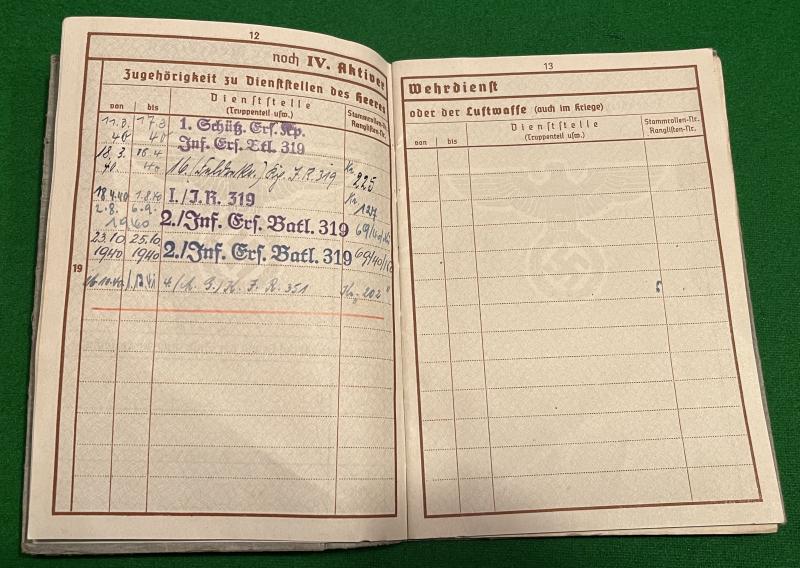 12
noch IV. Aktiver
Zugehörigkeit zu Dienststellen des Heeres
von bis Dienststelle (Truppenteil usw.) Stammrollen-Nr. Ranglisten-Nr.
11.3. 40 17.3. 40 1. Schütz. Ers. Kp.
Inf. Ers. Btl. 319
18.3. 40. 16.4. 40 16. Kp. J.R. 319 Nr. 225
18.4.40 1.8.40 I./J.R. 319 Nr. 127
2.8. 6.9. 1940 2./Inf. Ers. Batl. 319 69/40
23.10 1940 25.10 1940 2./Inf. Ers. Batl. 319 69/40
19
26.10.40 4./ J. R. 351 202
13
Wehrdienst
oder der Luftwaffe (auch im Kriege)
von bis Dienststelle (Truppenteil usw.) Stammrollen-Nr. Ranglisten-Nr.